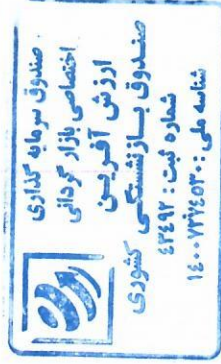 صندوق سرمایه گذاری
اختصاصی بازار گردانی
ارزش آفرین
صندوق بازنشستگی کشوری
شماره ثبت : ۴۳۴۹۲
شناسه ملی : ۱۴۰۰۷۳۷۴۵۳۰